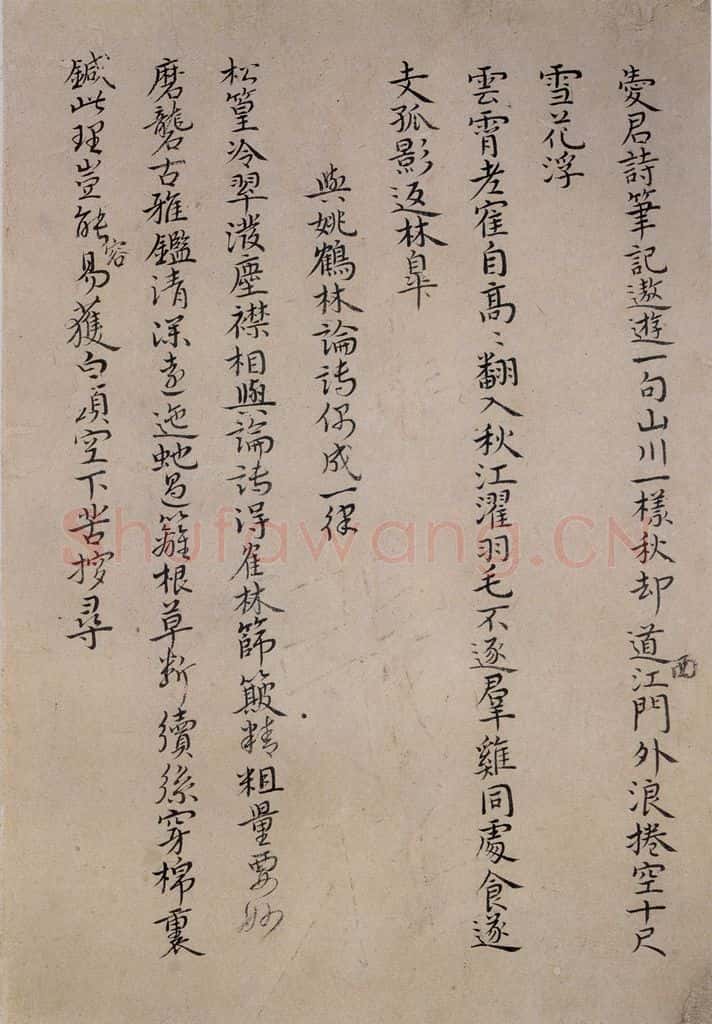 愛君詩筆記遨遊一句山川一樣秋却道江門外浪捲空十尺
西
雪花浮
雲霄老寉自髙〻翻入秋江濯羽毛不逐羣雞同處食遂
支孤影返林臯
與姚鶴林論詩偶成一律
松篁冷翠潑塵襟相與論詩得隺林篩簸精粗量要妙
磨礱古雅鑑清深逶迤虵過籬根草斷續絲穿棉裏
鍼此理豈能易獲白頭空下苦搜尋
容
Shufawang.CN